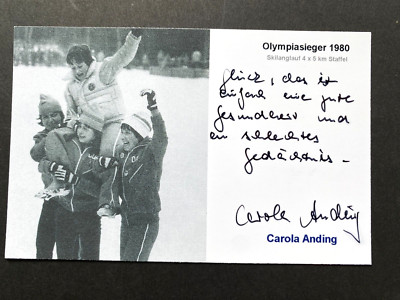 Olympiasieger 1980
Skilanglauf 4 x 5 km Staffel
Glück, das ist
einfach eine gute
Gesundheit und
ein schlechtes
Gedächtnis –
Carola Anding
Carola Anding